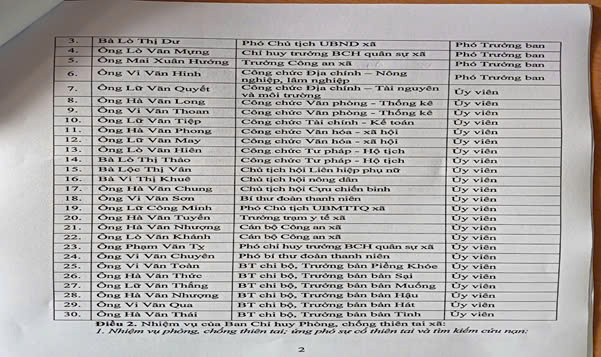 3. Bà Lò Thị Dư Phó Chủ tịch UBND xã Phó Trưởng ban
4. Ông Lò Văn Mựng Chỉ huy trưởng BCH quân sự xã Phó Trưởng ban
5. Ông Mai Xuân Hướng Trưởng Công an xã Phó Trưởng ban
6. Ông Vi Văn Hình Công chức Địa chính – Nông Phó Trưởng ban
nghiệp, lâm nghiệp
7. Ông Lữ Văn Quyết Công chức Địa chính – Tài nguyên Ủy viên
và môi trường
8. Ông Hà Văn Long Công chức Văn phòng - Thống kê Ủy viên
9. Ông Vi Văn Thoan Công chức Văn phòng - Thống kê Ủy viên
10. Ông Lữ Văn Tiệp Công chức Tài chính - Kế toán Ủy viên
11. Ông Hà Văn Phong Công chức Văn hóa - xã hội Ủy viên
12. Ông Lữ Văn May Công chức Văn hóa - xã hội Ủy viên
13. Ông Lò Văn Hiên Công chức Tư pháp - Hộ tịch Ủy viên
14. Bà Lò Thị Thảo Công chức Tư pháp - Hộ tịch Ủy viên
15. Bà Lộc Thị Vân Chủ tịch hội Liên hiệp phụ nữ Ủy viên
16. Bà Vi Thị Khuê Chủ tịch hội nông dân Ủy viên
17. Ông Hà Văn Chung Chủ tịch hội Cựu chiến binh Ủy viên
18. Ông Vi Văn Sơn Bí thư đoàn thanh niên Ủy viên
19. Ông Lữ Công Minh Phó Chủ tịch UBMTTQ xã Ủy viên
20. Ông Hà Văn Tuyển Trưởng trạm y tế xã Ủy viên
21. Ông Hà Văn Nhượng Cán bộ Công an xã Ủy viên
22. Ông Lò Văn Khánh Cán bộ Công an xã Ủy viên
23. Ông Phạm Văn Tỵ Phó chỉ huy trưởng BCH quân sự xã Ủy viên
24. Ông Vi Văn Chuyên Phó bí thư đoàn thanh niên Ủy viên
25. Ông Vi Văn Toàn BT chi bộ, Trưởng bản Piềng Khóe Ủy viên
26. Ông Hà Văn Thức BT chi bộ, Trưởng bản bản Sại Ủy viên
27. Ông Lữ Văn Thắng BT chi bộ, Trưởng bản bản Muống Ủy viên
28. Ông Hà Văn Nhượng BT chi bộ, Trưởng bản bản Hậu Ủy viên
29. Ông Vi Văn Qua BT chi bộ, Trưởng bản bản Hát Ủy viên
30. Ông Hà Văn Thái BT chi bộ, Trưởng bản bản Tình Ủy viên
Điều 2. Nhiệm vụ của Ban Chỉ huy Phòng, chống thiên tai xã:
1. Nhiệm vụ phòng, chống thiên tai; ứng phó sự cố thiên tai và tìm kiếm cứu nạn:
2